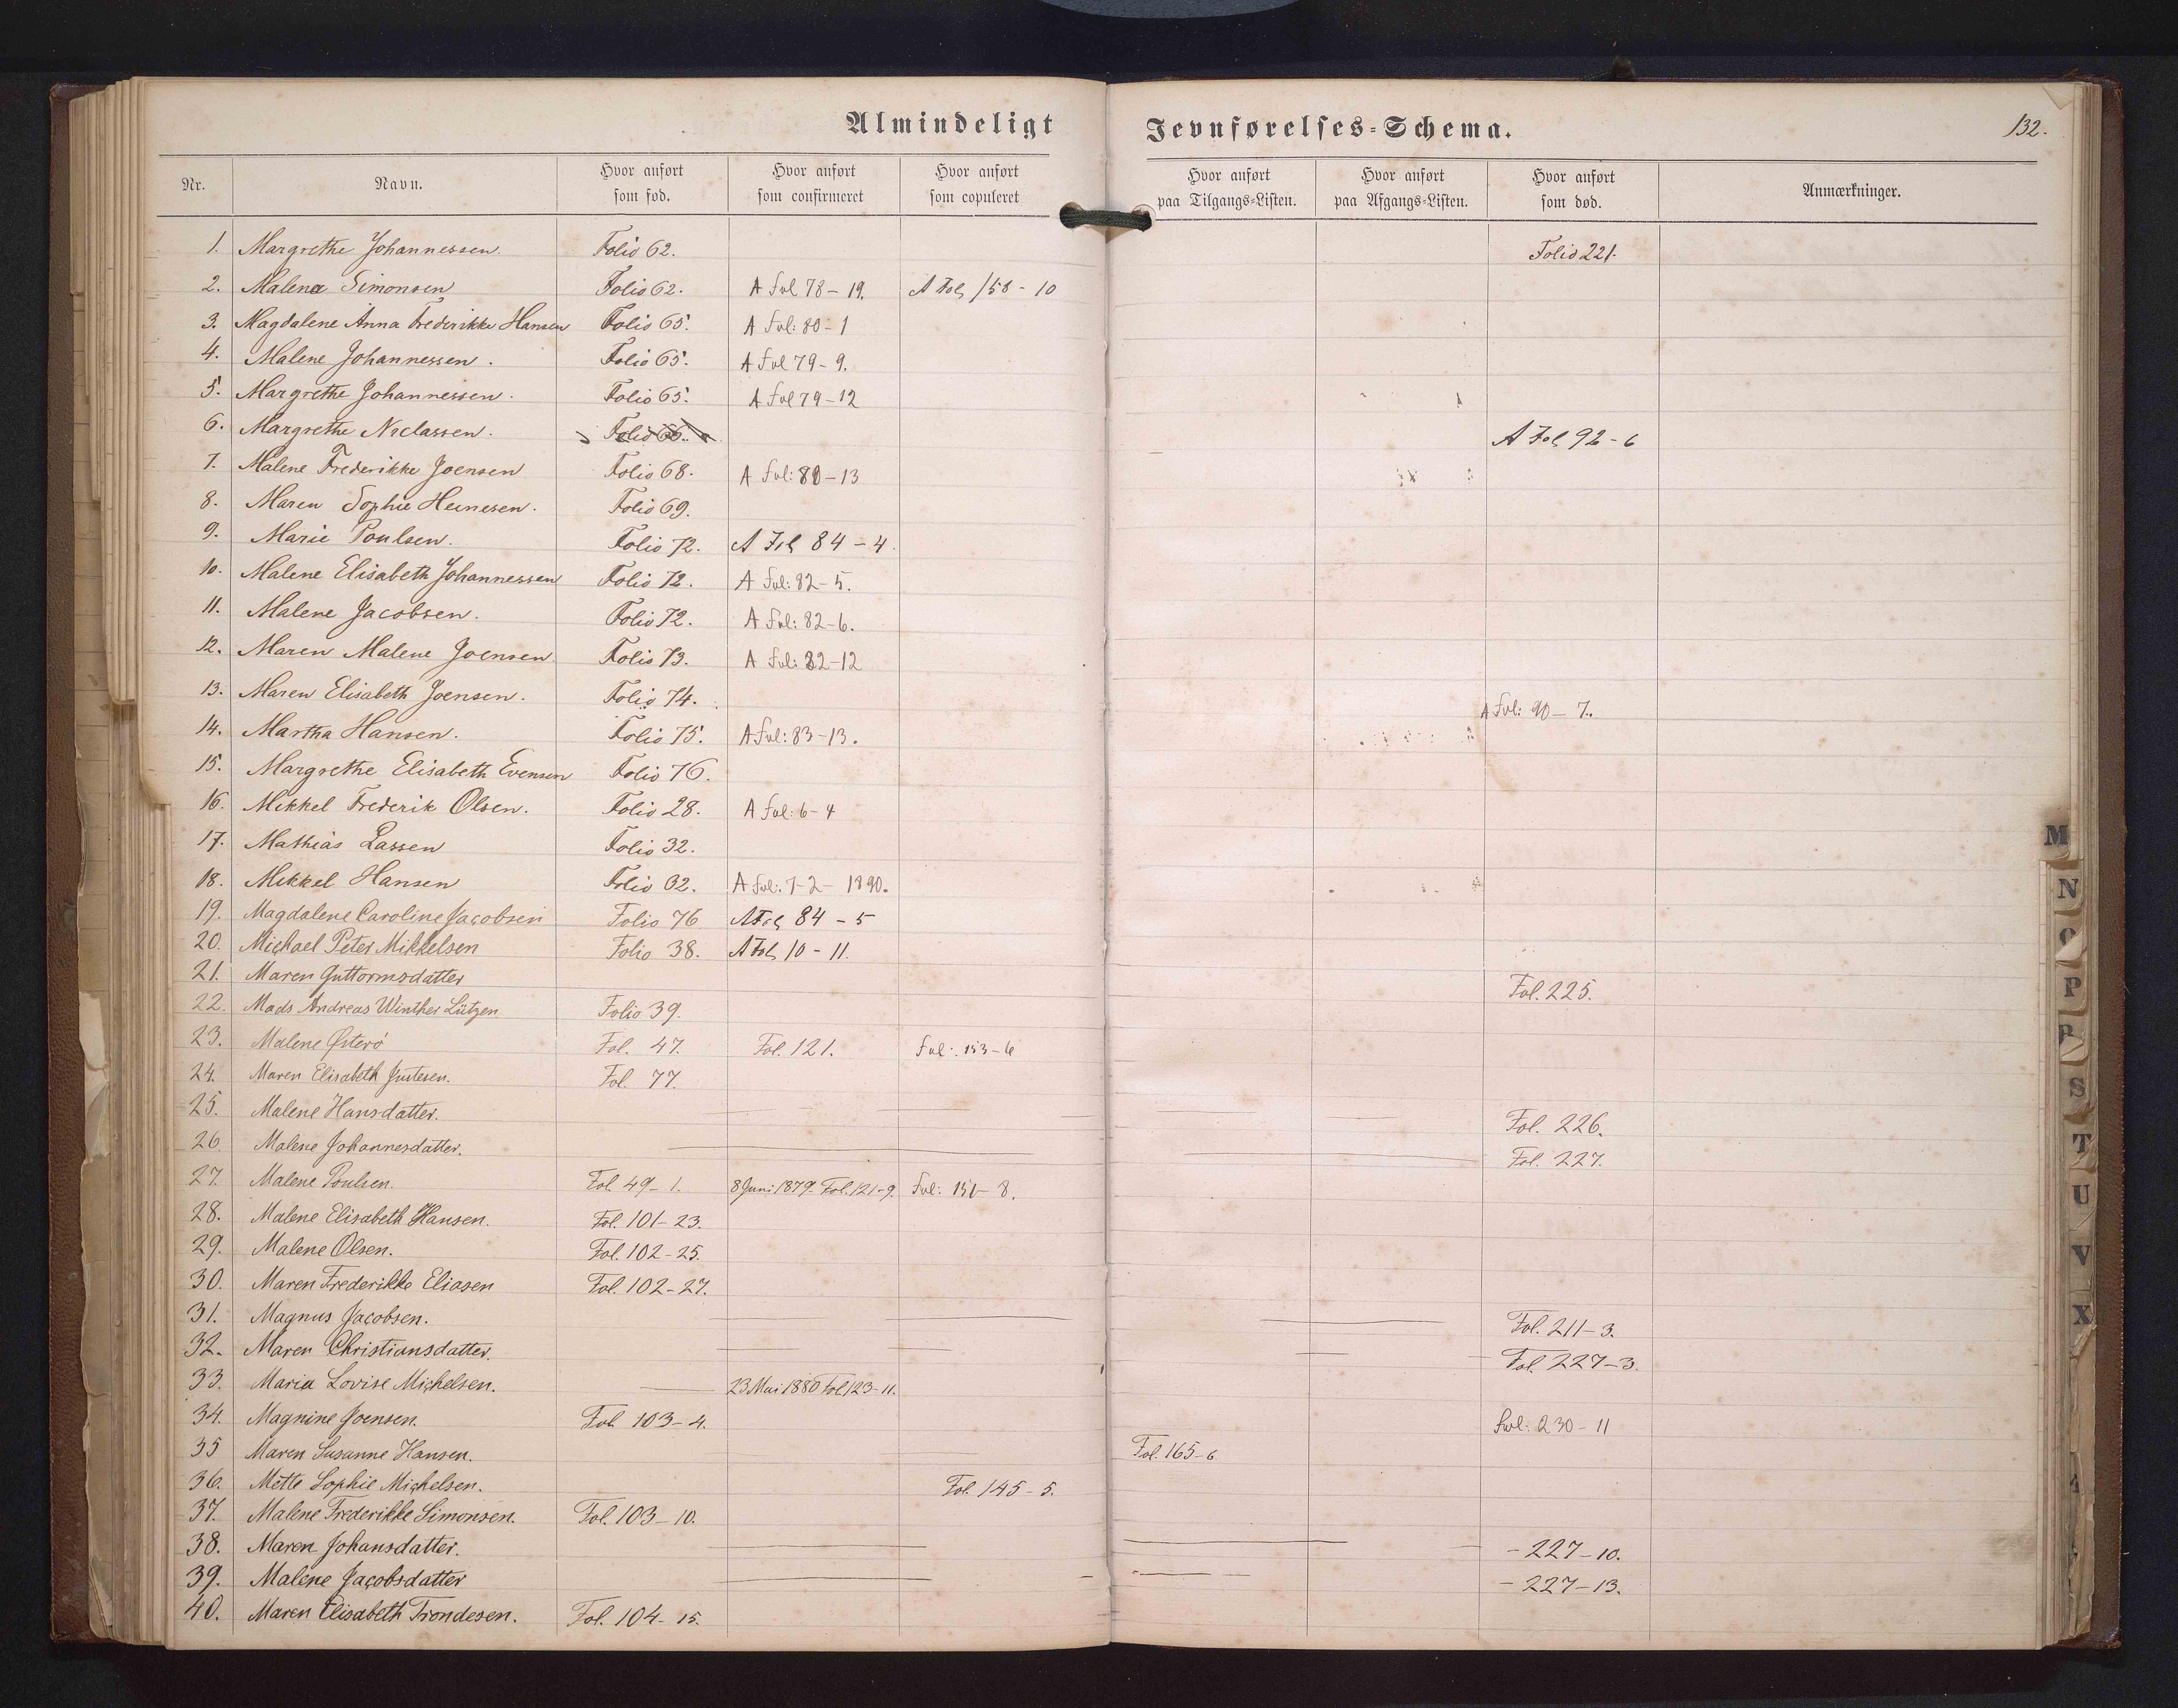 Almindeligt Jevnførelses-Schema. 132.
Nr. Navn. Hvor anført som fød. Hvor anført som confirmeret Hvor anført som copuleret Hvor anført paa Tilgangs-Listen. Hvor anført paa Afgangs-Listen. Hvor anført som død. Anmærkninger.
1. Margrethe Johannessen. Folio 62. Folio 221.
2. Malena Simonsen Folio 62. A Fol 78 - 19. A Fol 158 - 10
3. Magdalene Anna Frederikke Hansen Folio 65. A Fol: 80 - 1
4. Malene Johannessen. Folio 65. A Fol 79 - 9.
5. Margrethe Johannessen. Folio 65. A Fol 79 - 12
6. Margrethe Niclassen. Folio 66. A Fol 92 - 6
7. Malene Frederikke Joensen Folio 68. A Fol: 80 - 13
8. Maren Sophie Heinesen. Folio 69.
9. Marie Poulsen. Folio 72. A Fol 84 - 4.
10. Malene Elisabeth Johannessen Folio 72. A Fol: 82 - 5.
11. Malene Jacobsen. Folio 72. A Fol: 82 - 6.
12. Maren Malene Joensen Folio 73. A Fol: 82 - 12
13. Maren Elisabeth Joensen. Folio 74. A Fol: 90 - 7.
14. Martha Hansen. Folio 75. A Fol: 83 - 13.
15. Margrethe Elisabeth Evensen Folio 76.
16. Mikkel Frederik Olsen. Folio 28. A Fol: 6 - 4
17. Mathias Lassen Folio 32.
18. Mikkel Hansen Folio 32. A Fol: 7 - 2 - 1890.
19. Magdalene Caroline Jacobsen Folio 76 A Fol 84 - 5
20. Michael Peter Mikkelsen Folio 38. A Fol 10 - 11.
21. Maren Guttormsdatter Fol. 225.
22. Mads Andreas Winther Lützen Folio 39.
23. Malene Østerø Fol. 47. Fol. 121. Fol: 153 - 6
24. Maren Elisabeth Justesen. Fol. 77.
25. Malene Hansdatter. Fol. 226.
26. Malene Johannesdatter. Fol. 227.
27. Malene Poulsen. Fol. 49 - 1. 8 Juni 1879. Fol. 121 - 9. Fol: 151 - 8.
28. Malene Elisabeth Hansen. Fol. 101 - 23.
29. Malene Olsen. Fol. 102 - 25.
30. Maren Frederikke Eliasen Fol. 102 - 27.
31. Magnus Jacobsen. Fol. 211 - 3.
32. Maren Christiansdatter. Fol. 227 - 3.
33. Maria Lovise Michelsen. 23 Mai 1880 Fol 123 - 11.
34. Magnine Joensen. Fol. 103 - 4. Fol: 230 - 11
35 Maren Susanne Hansen. Fol. 165 - 6
36. Mette Sophie Michelsen. Fol. 145 - 5.
37. Malene Frederikke Simonsen. Fol. 103 - 10.
38. Maren Johansdatter. - 227 - 10.
39. Malene Jacobsdatter - 227 - 13.
40. Maren Elisabeth Trondesen. Fol. 104 - 15.
M
N
O
P
R
S
T
U
V
X